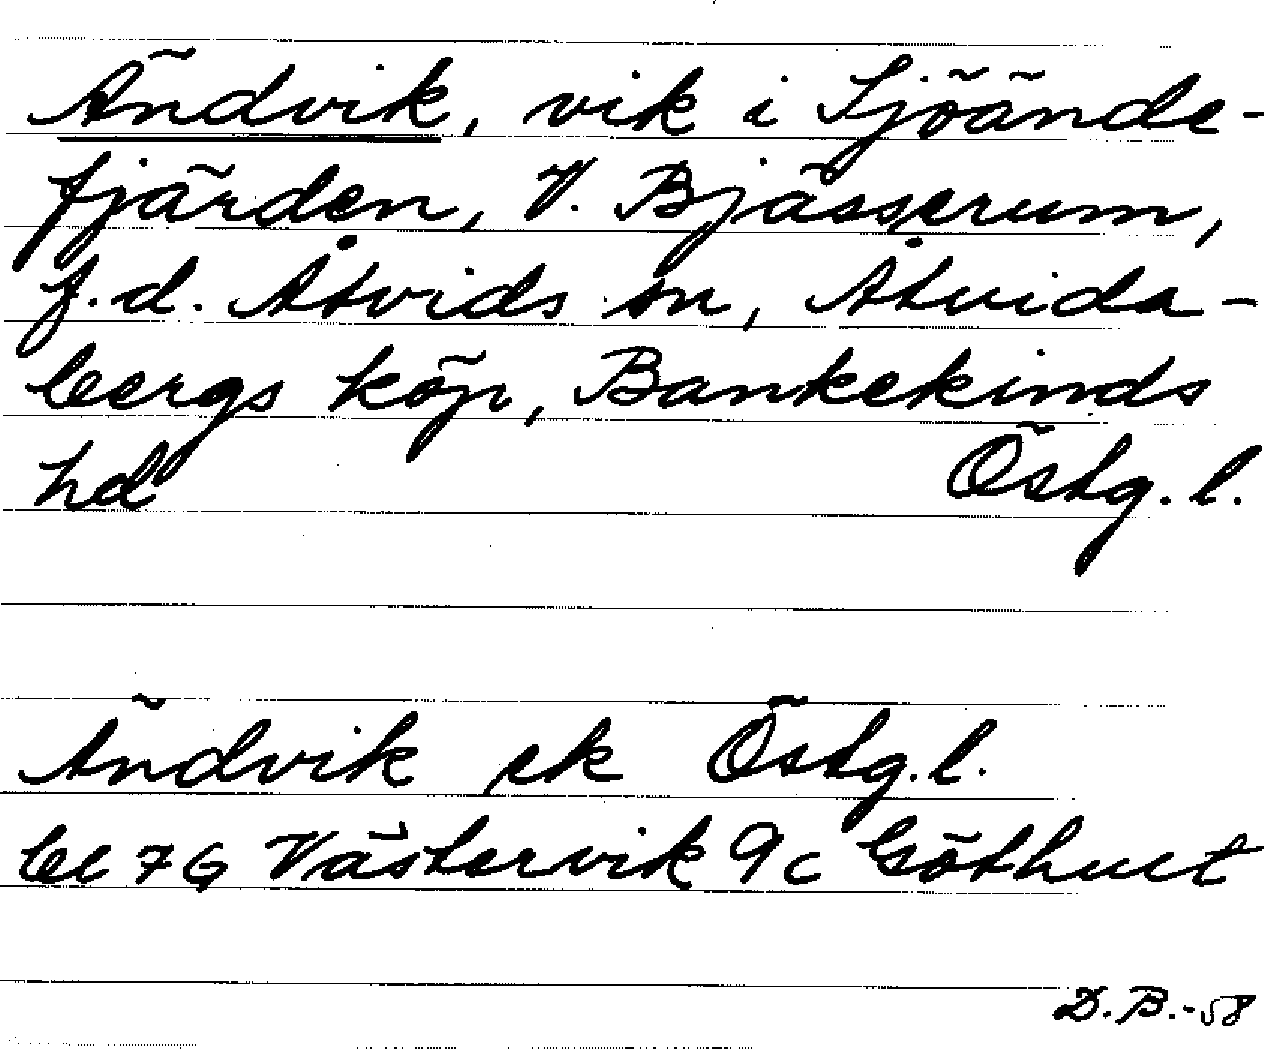 Ändvik, vik i Sjöände-
fjärden, V. Bjässerum,
f.d. Åtvids sn, Åtvida-
bergs köp, Bankekinds
hd Östg. l.
Ändvik ek Östg. l.
bl 7G Västervik 9c Göthult
D.B.-58